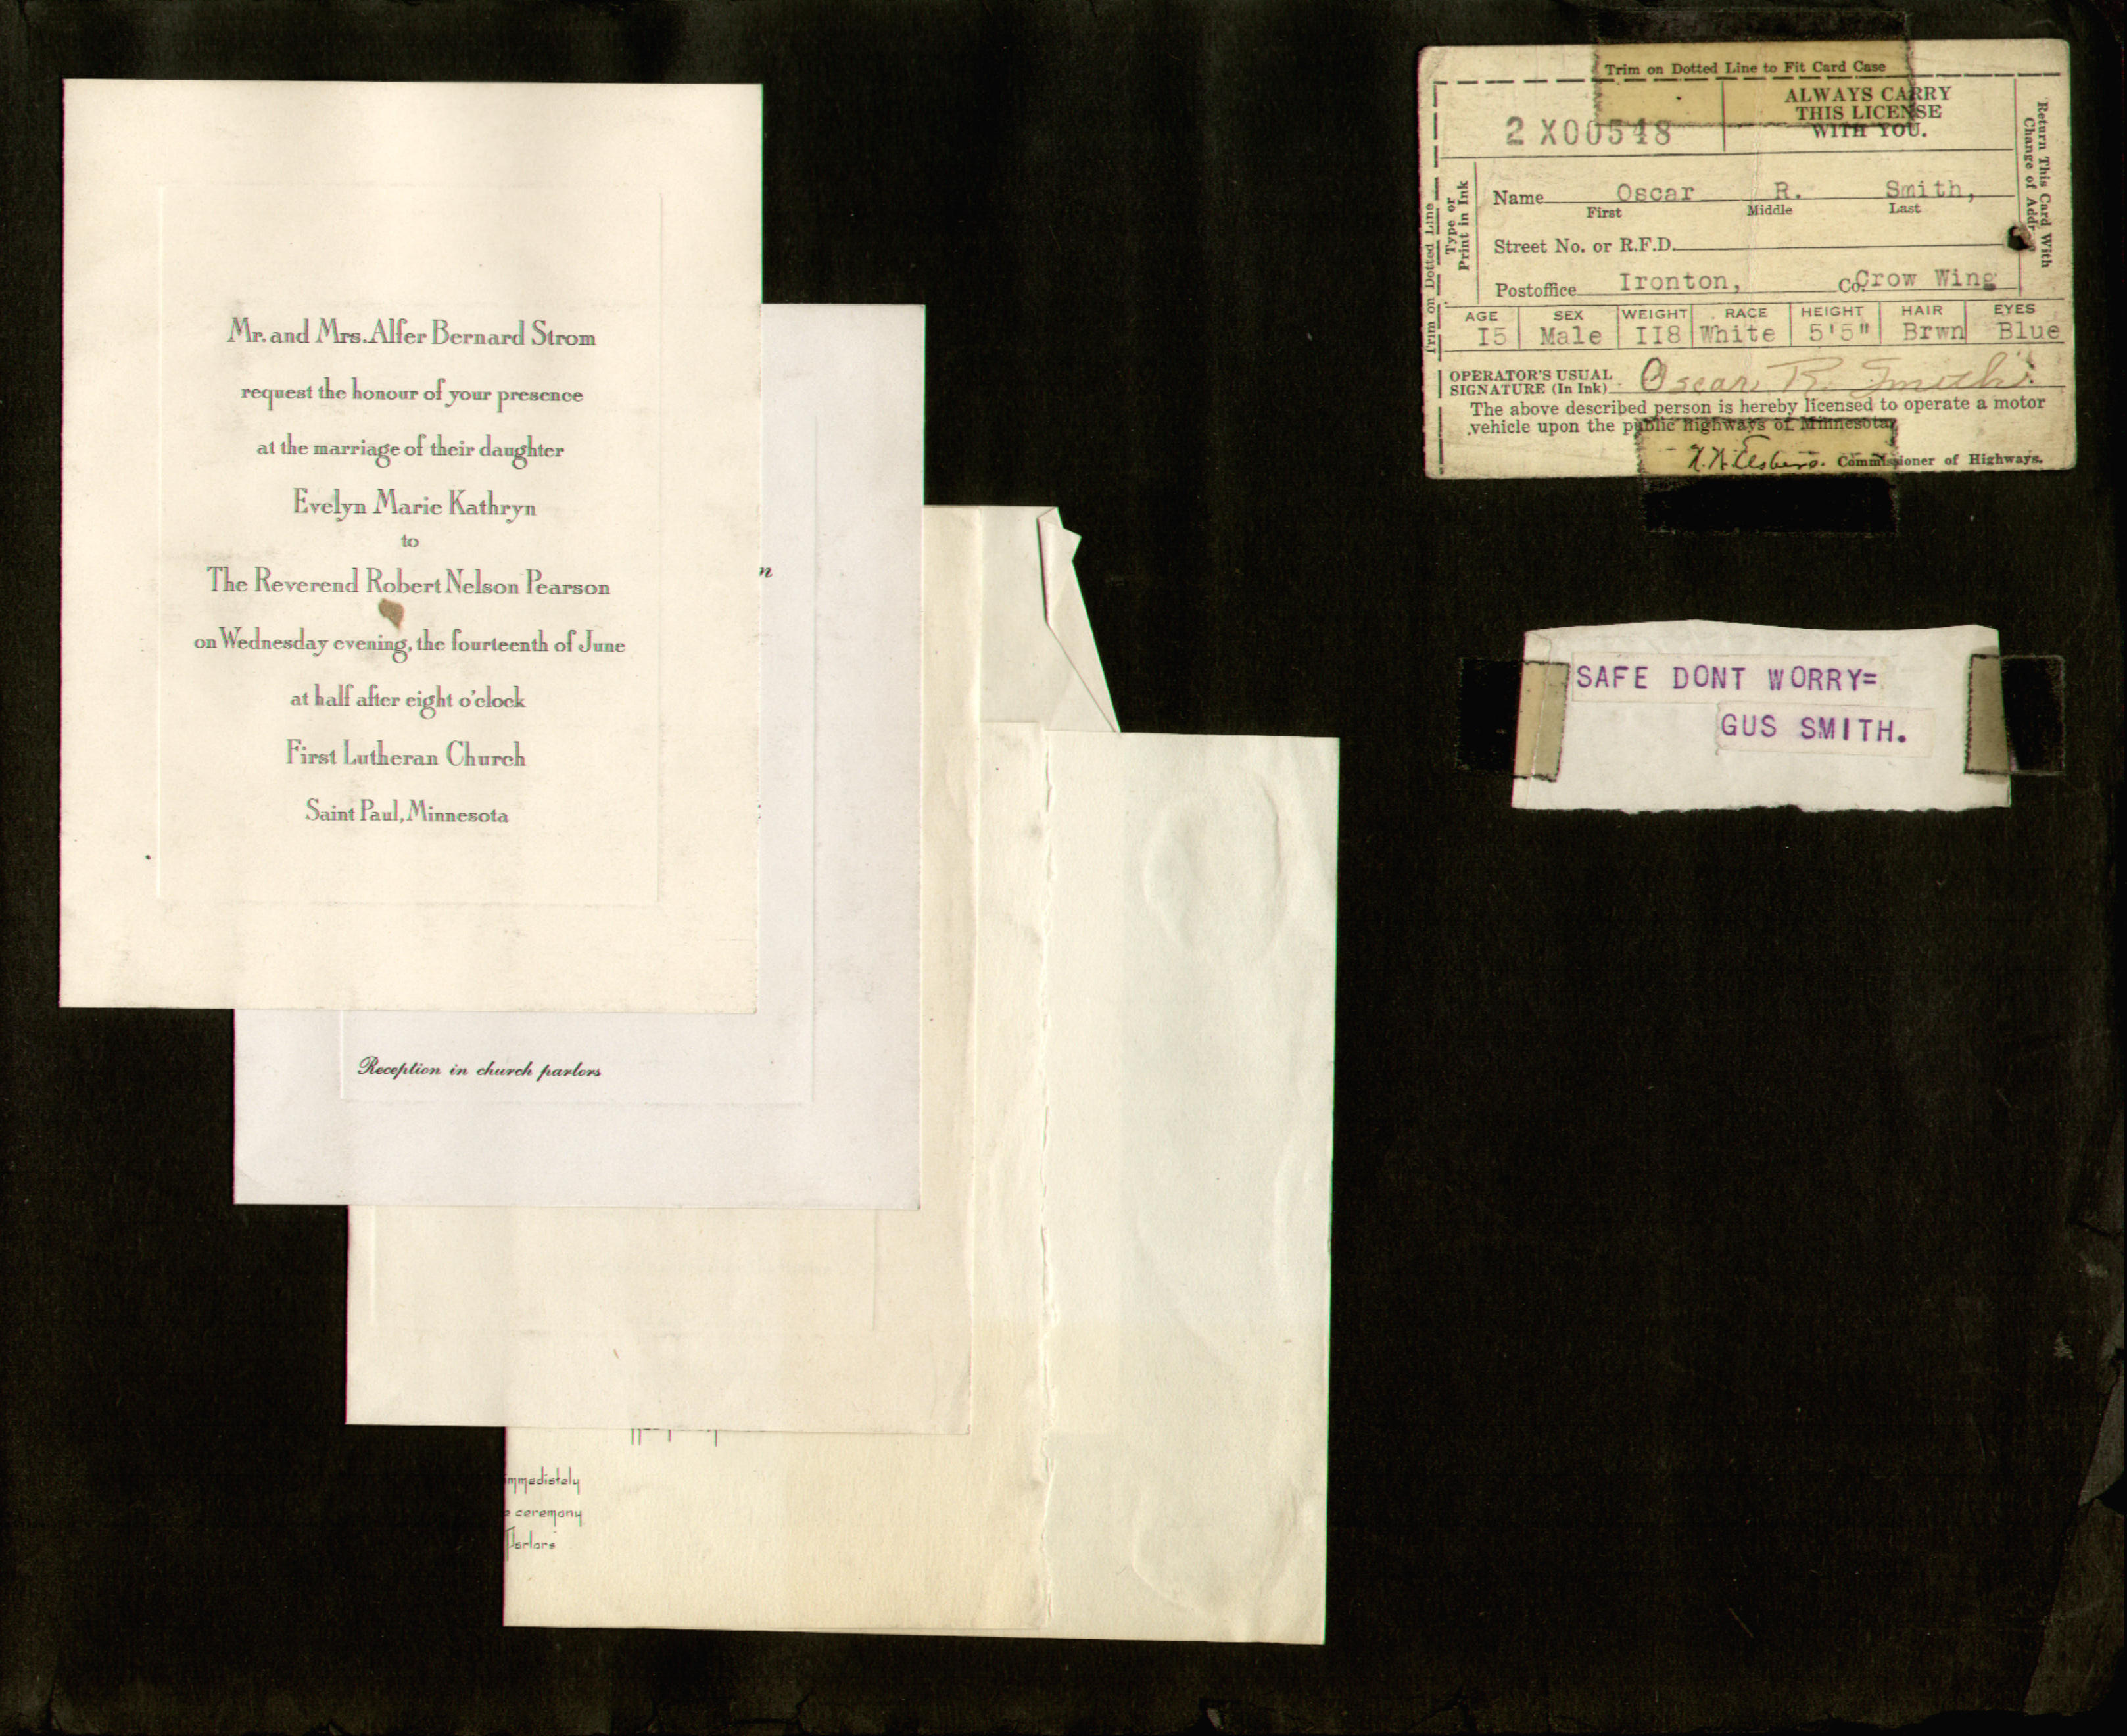 Mr. and Mrs. Alfer Bernard Strom
request the honour of your presence
at the marriage of their daughter
Evelyn Marie Kathryn
to
The Reverend Robert Nelson Pearson
on Wednesday evening, the fourteenth of June
at half after eight o'clock
First Lutheran Church
Saint Paul, Minnesota
n
Reception in church parlors
mmediately
ceremony
Parlors
Trim on Dotted Line to Fit Card Case
2 X00548
ALWAYS CARRY
THIS LICENSE
WITH YOU.
Return This Card With
Change of Addr
Trim on Dotted Line
Type or
Print in Ink
Name Oscar R. Smith,
First Middle Last
Street No. or R.F.D.
Postoffice Ironton, Co. Crow Wing
AGE SEX WEIGHT RACE HEIGHT HAIR EYES
I5 Male II8 White 5'5" Brwn Blue
OPERATOR'S USUAL
SIGNATURE (In Ink) Oscar R. Smith
The above described person is hereby licensed to operate a motor
vehicle upon the public highways of Minnesota
Commissioner of Highways.
SAFE DONT WORRY=
GUS SMITH.